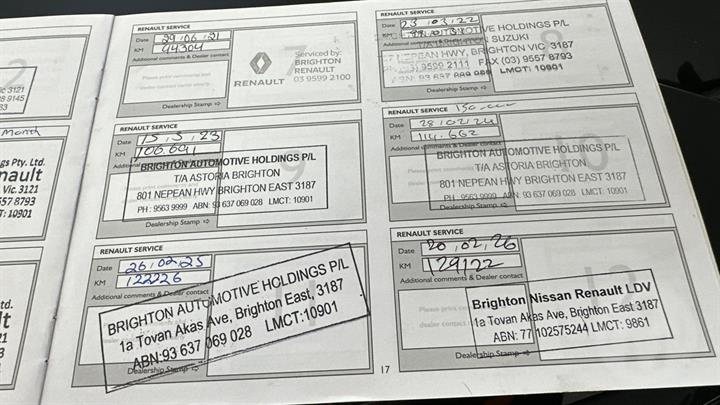 RENAULT SERVICE
Date 29.06.21
KM 94304
Additional comments & Dealer contact
7
RENAULT
Serviced by:
BRIGHTON
RENAULT
03 9599 2100
Dealership Stamp ⇨
RENAULT SERVICE
Date 23.03.22
KM
AUTOMOTIVE HOLDINGS P/L
SUZUKI
NEPEAN HWY, BRIGHTON VIC 3187
9599 2111 FAX (03) 9557 8793
LMCT: 10901
8
Dealership Stamp ⇨
RENAULT SERVICE
Date 15.5.23
KM 106691
Additional comments & Dealer contact
9
BRIGHTON AUTOMOTIVE HOLDINGS P/L
T/A ASTORIA BRIGHTON
801 NEPEAN HWY BRIGHTON EAST 3187
PH : 9563 9999 ABN: 93 637 069 028 LMCT: 10901
Dealership Stamp ⇨
RENAULT SERVICE
Date 28.02.24
KM 114.662
Additional comments & Dealer contact
10
BRIGHTON AUTOMOTIVE HOLDINGS P/L
T/A ASTORIA BRIGHTON
801 NEPEAN HWY BRIGHTON EAST 3187
PH : 9563 9999 ABN: 93 637 069 028 LMCT: 10901
Dealership Stamp ⇨
RENAULT SERVICE
Date 26.02.25
KM 122226
Additional comments & Dealer contact
11
BRIGHTON AUTOMOTIVE HOLDINGS P/L
1a Tovan Akas Ave, Brighton East, 3187
ABN:93 637 069 028 LMCT:10901
Dealership Stamp ⇨
RENAULT SERVICE
Date 20.02.26
KM 129122
Additional comments & Dealer contact
12
Brighton Nissan Renault LDV
1a Tovan Akas Ave, Brighton East 3187
ABN: 77 102575244 LMCT: 9861
Dealership Stamp ⇨
17
Vic 3121
28 9145
Month
gs Pty. Ltd.
nault
Vic. 3121
557 8793
T: 10901
td.
lt